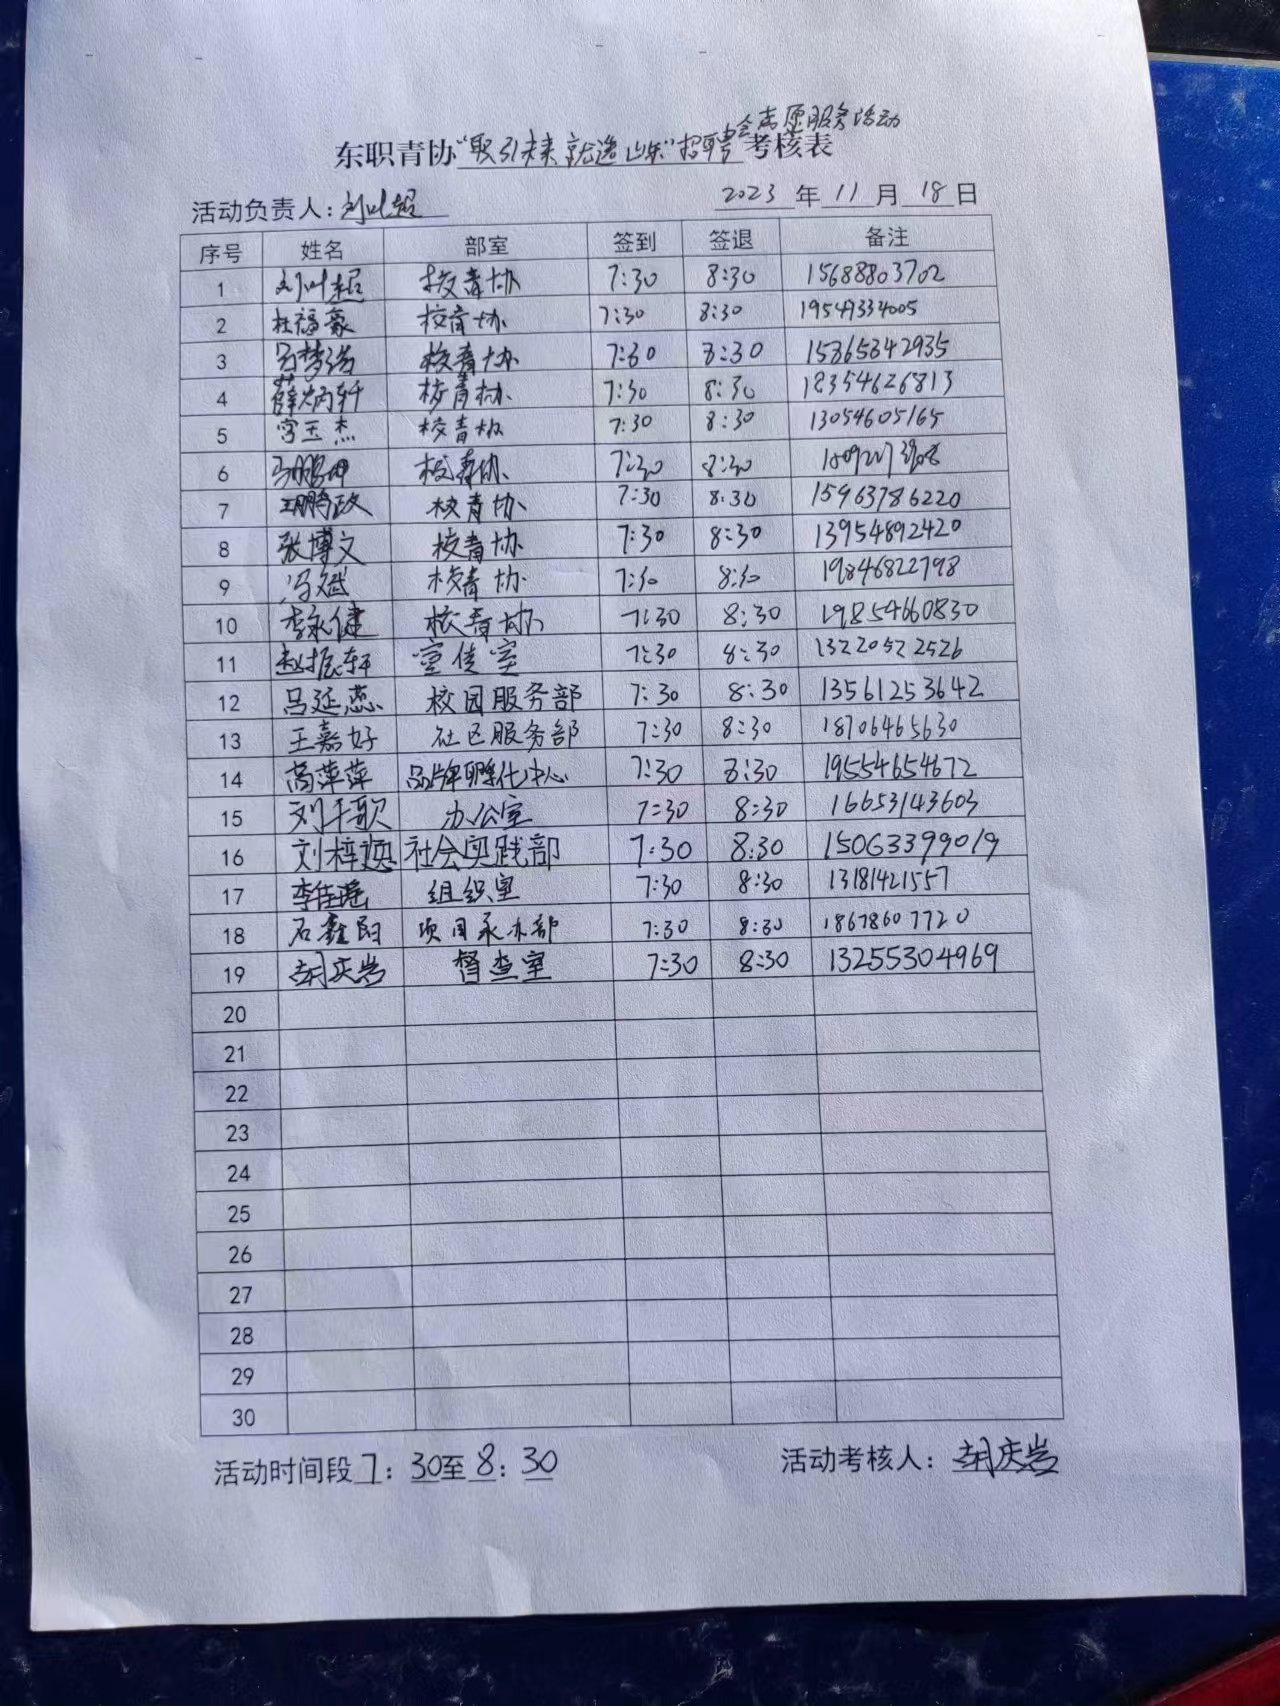 会志愿服务活动
东职青协"职引未来 就选山东"招聘考核表
活动负责人：刘叶超 2023 年 11 月 18 日
序号 姓名 部室 签到 签退 备注
1 刘叶超 校青协 7:30 8:30 15688803702
2 杜福豪 校青协 7:30 8:30 19547334005
3 校青协 7:30 8:30 15865342935
4 薛炳轩 校青协 7:30 8:30 18354626813
5 宫玉杰 校青协 7:30 8:30 13054605165
6 校青协 7:30 8:30
7 王鹏政 校青协 7:30 8:30 15963786220
8 张博文 校青协 7:30 8:30 13954892420
9 冯斌 校青协 7:30 8:30 19846822798
10 李永健 校青协 7:30 8:30 19854660830
11 赵振轩 宣传室 7:30 8:30 13220522526
12 吕延蕊 校园服务部 7:30 8:30 13561253642
13 王嘉好 社区服务部 7:30 8:30 18706465630
14 高萍萍 品牌孵化中心 7:30 8:30 19554654672
15 刘千歌 办公室 7:30 8:30 16653143603
16 刘梓 社会实践部 7:30 8:30 15063399019
17 李佳瑶 组织室 7:30 8:30 13181421557
18 石鑫阳 项目承办部 7:30 8:30 18678607720
19 胡庆岩 督查室 7:30 8:30 13255304969
20
21
22
23
24
25
26
27
28
29
30
活动时间段 7：30至 8：30 活动考核人：胡庆岩